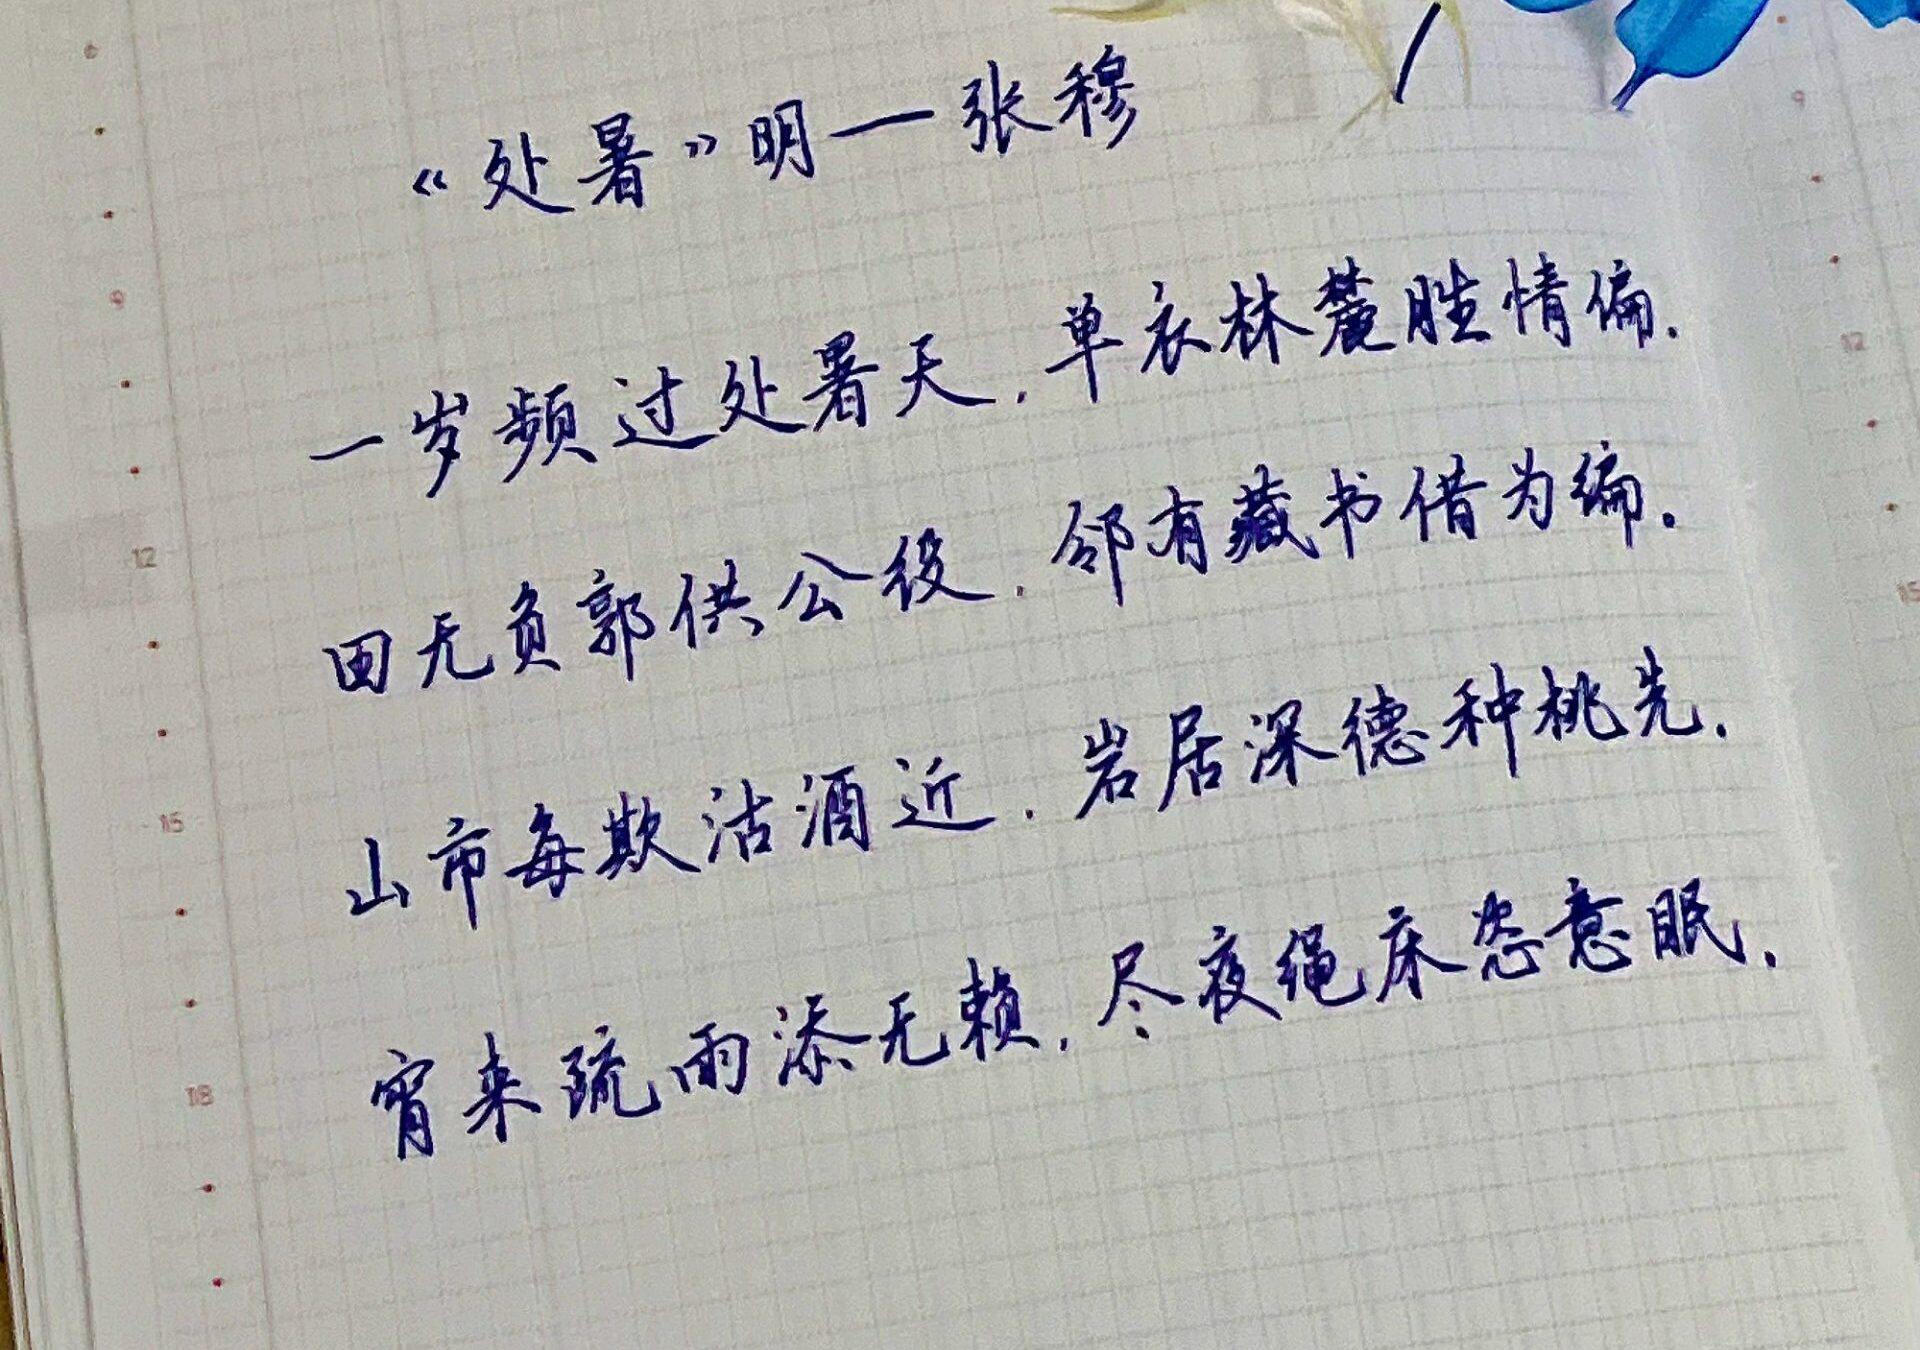 《处暑》明一张穆
一岁频过处暑天.单衣林麓胜情偏.
田无负郭供公役.邻有藏书借为编.
山市每欺沽酒近.岩居深德种桃先.
宵来疏雨添无赖.尽夜绳床恣意眠.
9
12
15
18
9
12
15